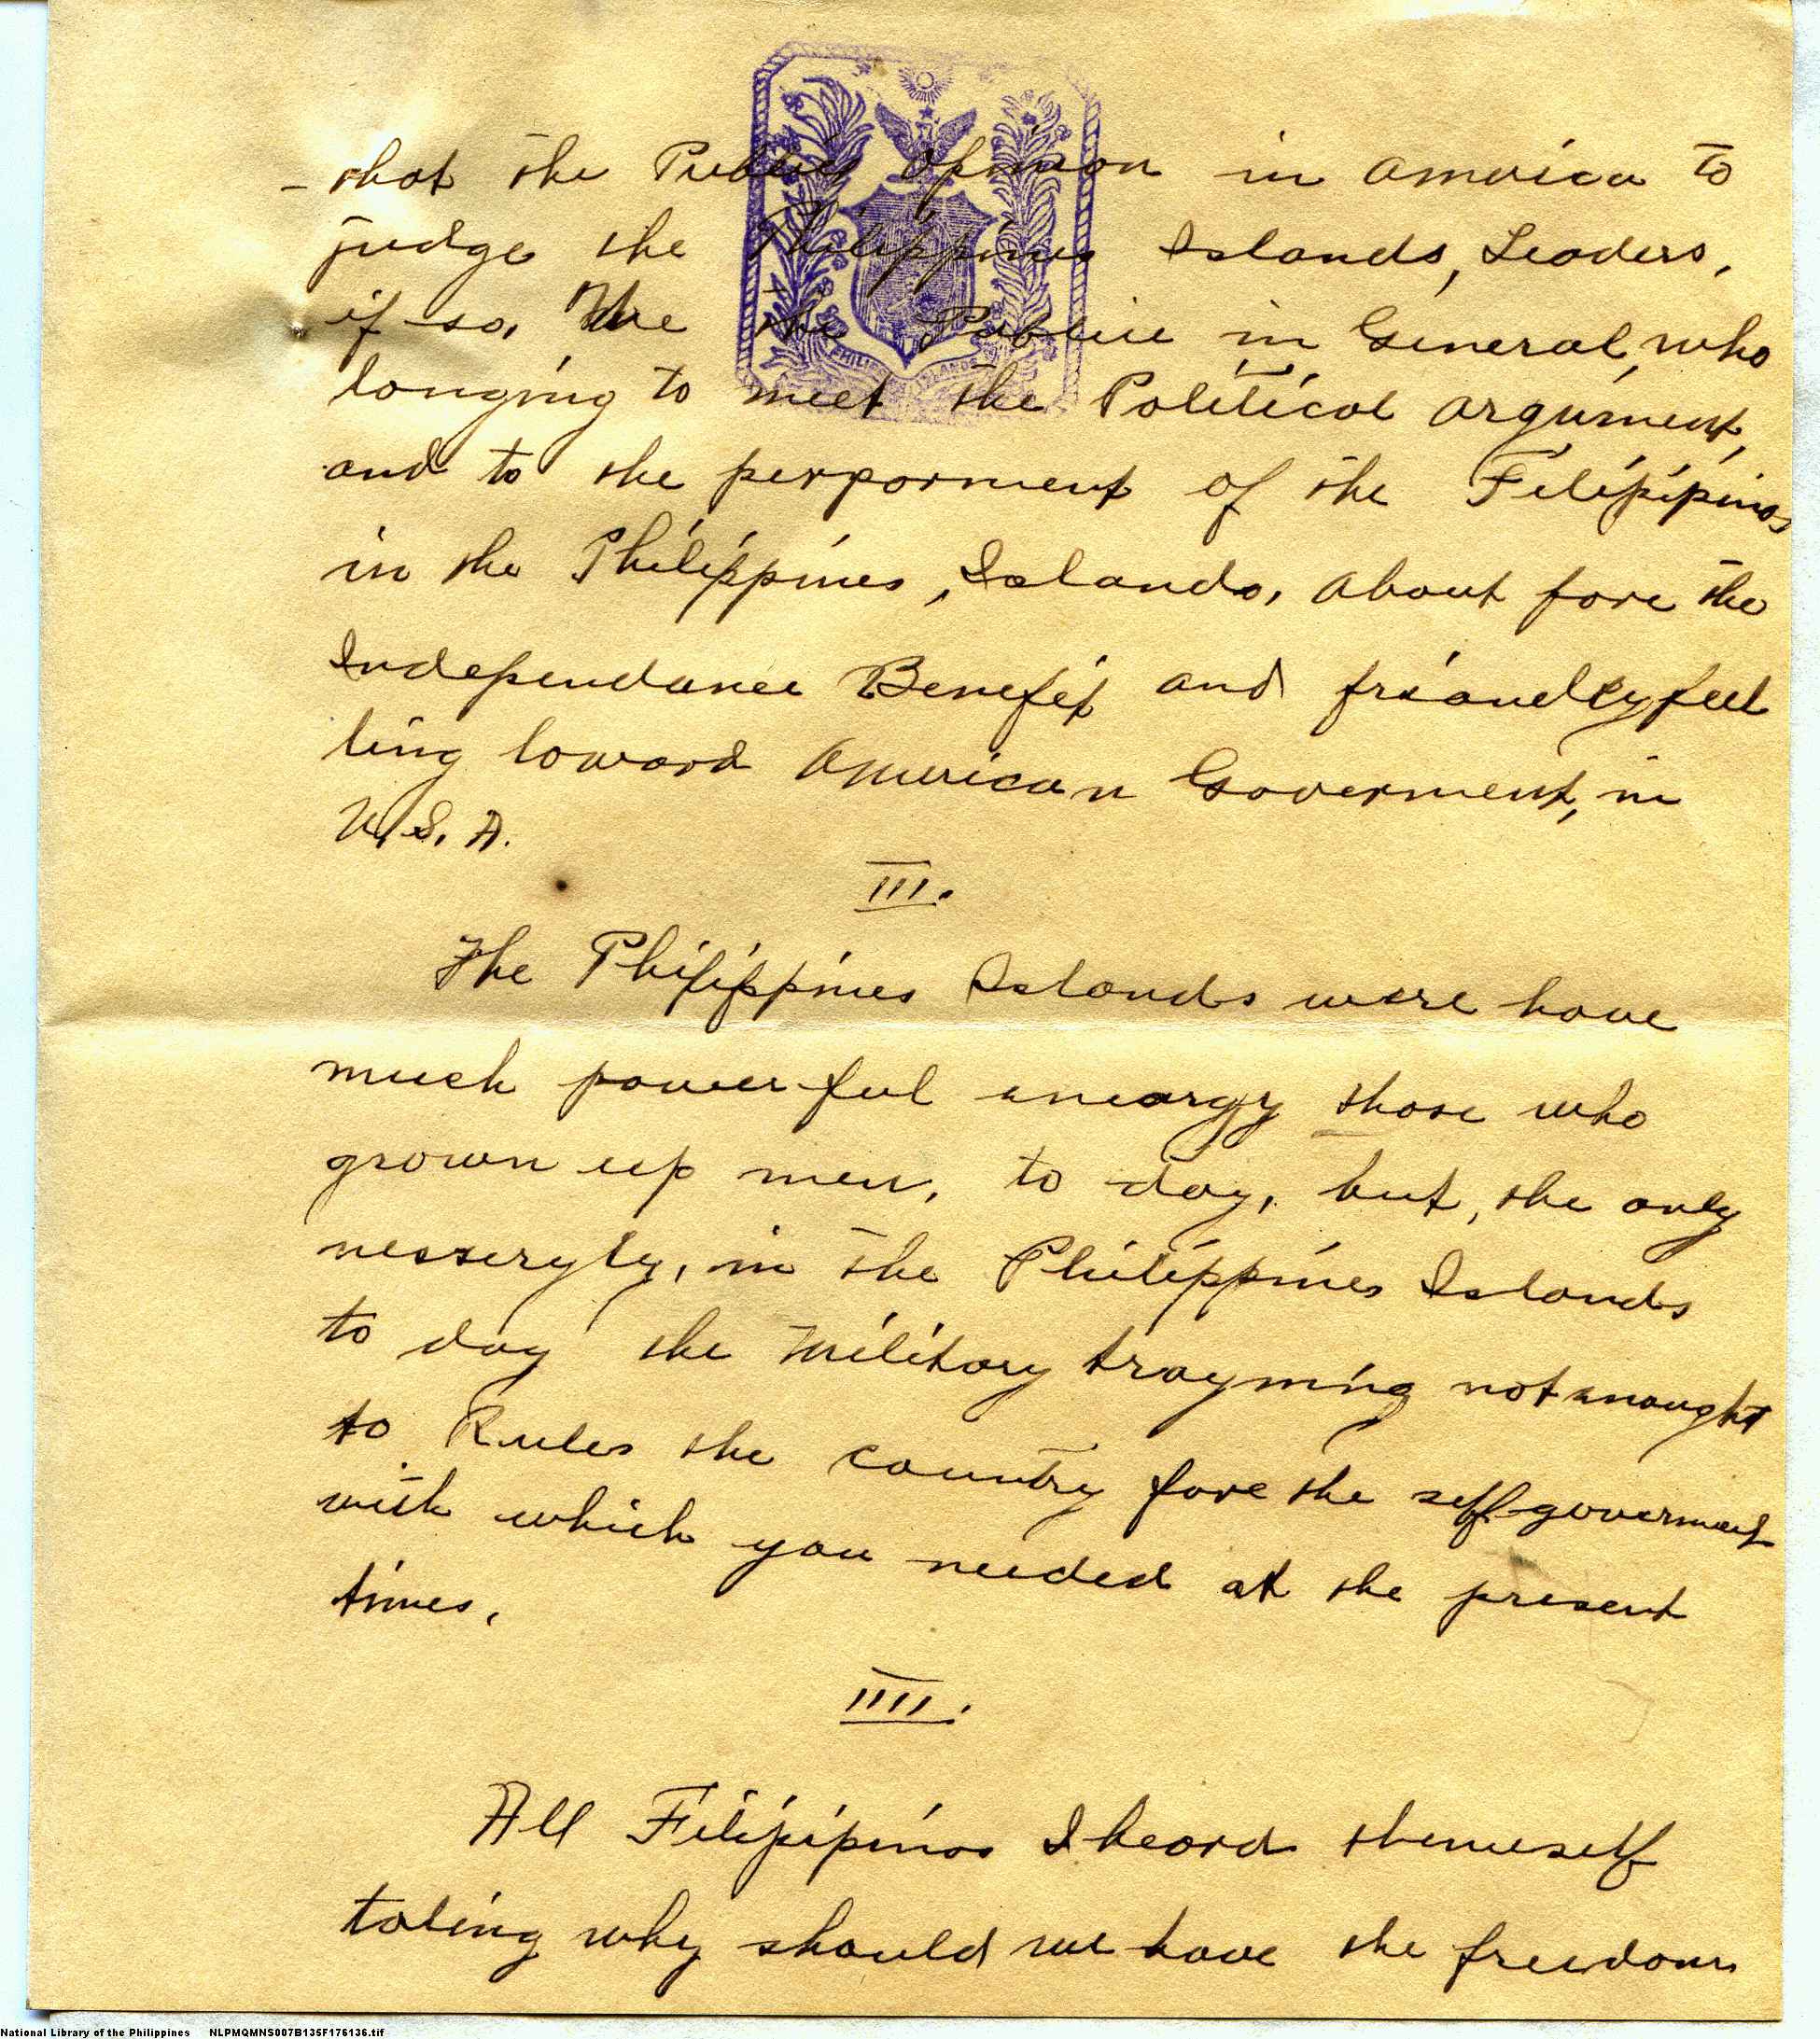 - that the Public opinion in America to
judge the Philippines Islands, Leaders,
if so, We the Public in General, who
longing to meet the Political argument,
and to the perporment of the Filipipinos
in the Philippines, Islands, about fore the
Independance Benefit and friandly feel
ling toward American Goverment, in
U.S.A.
III.
The Philippines Islands were have
much powerful anergy those who
grown up men, to day, but, the only
nesseryly, in the Philippines Islands
to day the Military trayning not anought
to Rules the country fore the self-goverment
with which you needed at the present
times,
IIII.
All Filipipinos I heard themeself
taling why should we have the freedom
PHILIPPINE ISLANDS
National Library of the Philippines NLPMQMNS007B135F176136.tif